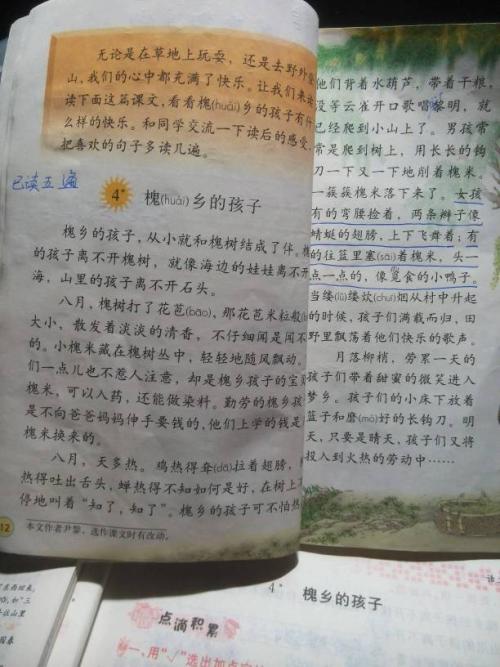 无论是在草地上玩耍，还是去野外
山，我们的心中都充满了快乐。让我们来
读下面这篇课文，看看槐(huái)乡的孩子有什
么样的快乐。和同学交流一下读后的感受，
把喜欢的句子多读几遍。
已读五遍
4*
槐(huái)乡的孩子
槐乡的孩子，从小就和槐树结成了伴。槐
的孩子离不开槐树，就像海边的娃娃离不开
海，山里的孩子离不开石头。
八月，槐树打了花苞(bāo)，那花苞米粒般
大小，散发着淡淡的清香，不仔细闻是闻不
的。小槐米藏在槐树丛中，轻轻地随风飘动。
们一点儿也不惹人注意，却是槐乡孩子的宝
槐米，可以入药，还能做染料。勤劳的槐乡孩
是不向爸爸妈妈伸手要钱的，他们上学的钱是
槐米换来的。
八月，天多热。鸡热得耷(dā)拉着翅膀，
热得吐出舌头，蝉热得不知如何是好，在树上不
停地叫着“知了，知了”。槐乡的孩子可不怕热
12
本文作者尹黎，选作课文时有改动。
他们背着水葫芦，带着干粮，
没等云雀开口歌唱黎明，就
已经爬到小山上了。男孩常
常是爬到树上，用长长的钩
刀一下又一下地削着槐米。
一簇簇槐米落下来了。女孩
有的弯腰捡着，两条辫子像
蜻蜓的翅膀，上下飞舞着；有
的往篮里塞(sāi)着槐米，头一
点一点的，像觅食的小鸭子。
当缕(lǚ)缕炊(chuī)烟从村中升起
的时候，孩子们满载而归，田
野里飘荡着他们快乐的歌声。
月落柳梢，劳累一天的
孩子们带着甜蜜的微笑进入
梦乡。孩子们的小床下放着
篮子和磨(mó)好的长钩刀。明
天，只要是晴天，孩子们又将
投入到火热的劳动中……
4*
槐乡的孩子
点滴积累
一、用“√”选出加点字